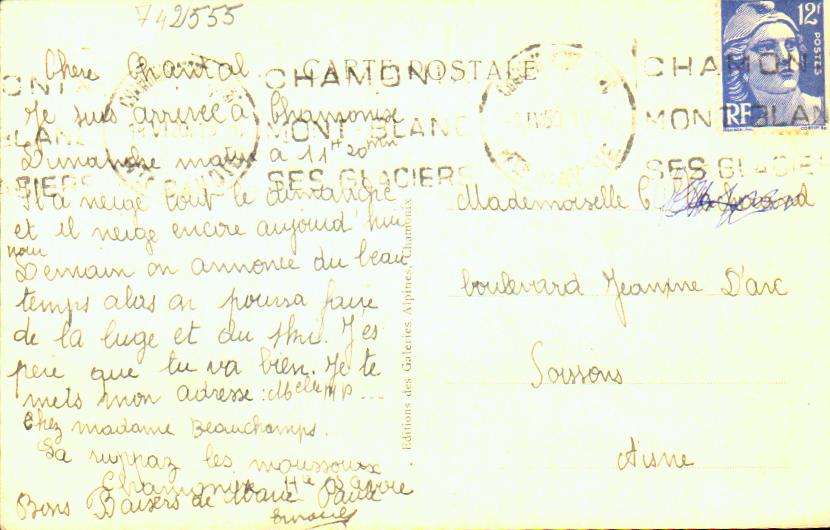 742555
CARTE POSTALE
12f
POSTES
RF
CHAMONIX
MONT-BLANC
SES GLACIERS
CHAMONIX
MONT-BLANC
SES GLACIERS
Chère Chantal
Je suis arrivée à Chamonix
Dimanche matin à 11H 20mn
Il a neigé tout le dimanche
et il neige encore aujourd'hui
pour
Demain on annonce du beau
temps alas on pourra faire
de la luge et du ski. J'es
père que tu va bien. Je te
mets mon adresse : Melle M P ...
chez madame Beauchamps.
La ruppaz les moussoux
Chamonix Hte Savoie
Bons Baisers de Marie Paule
Editions des Galeries Alpines, Chamonix
Mademoiselle C
boulevard Jeanne D'arc
Soissons
Aisne